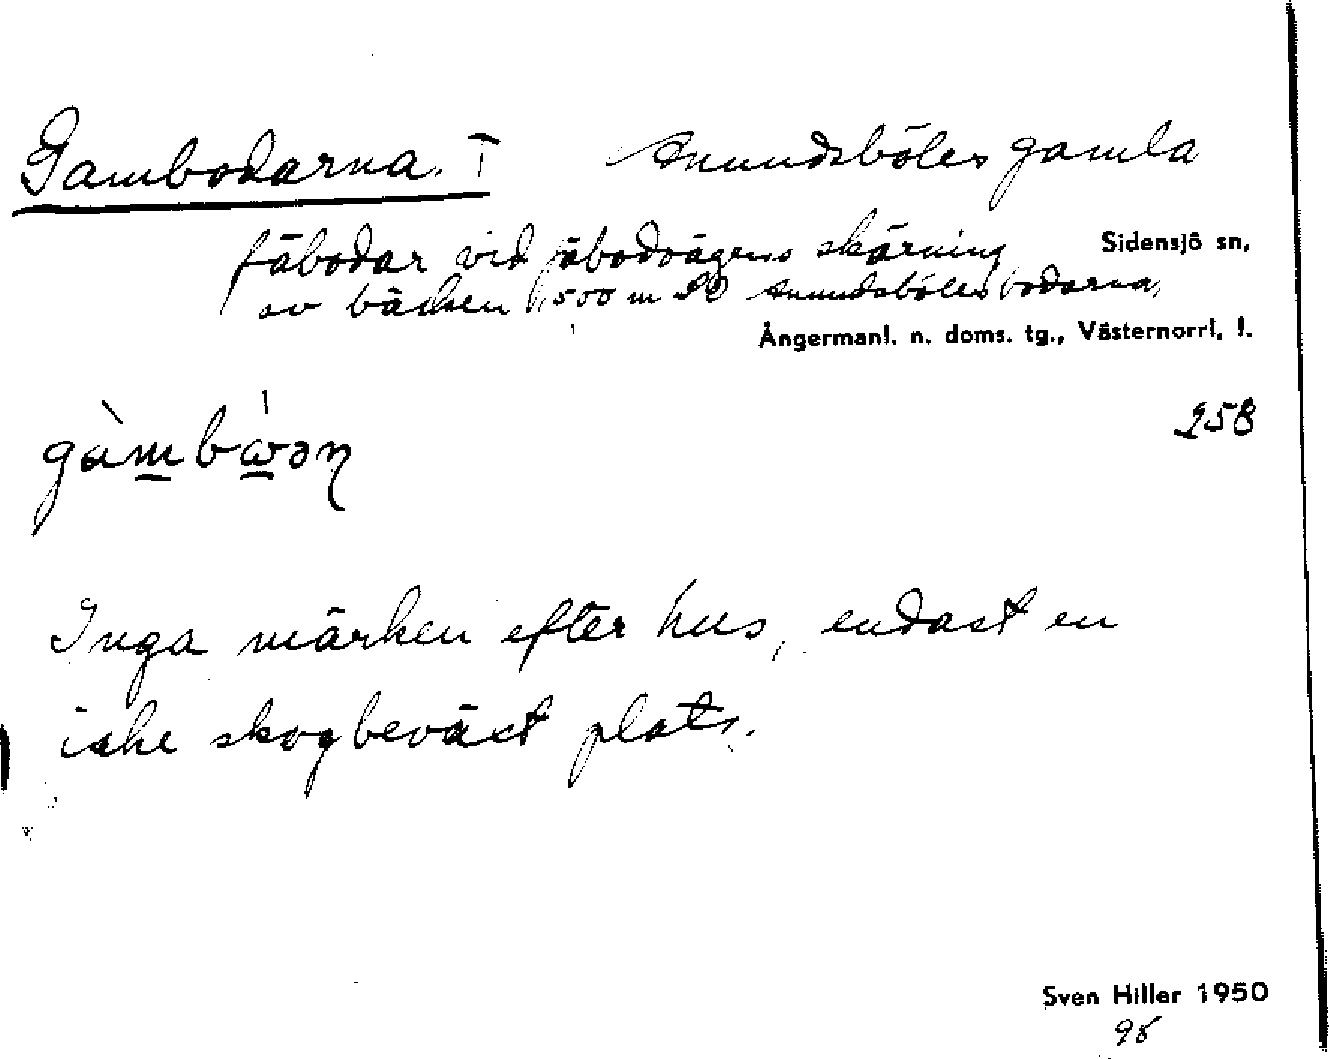 Gambodarna. I Anundsböles gamla
fäbodar vid fäbodvägens skärning
Sidensjö sn,
av bäcken 1,500 m SO Anundsbölesbodarna,
Ångermanl. n. doms. tg., Västernorrl. l.
258
gàmbẁ́əɳ
Inga märken efter hus, endast en
icke skogbeväxt plats.
Sven Hiller 1950